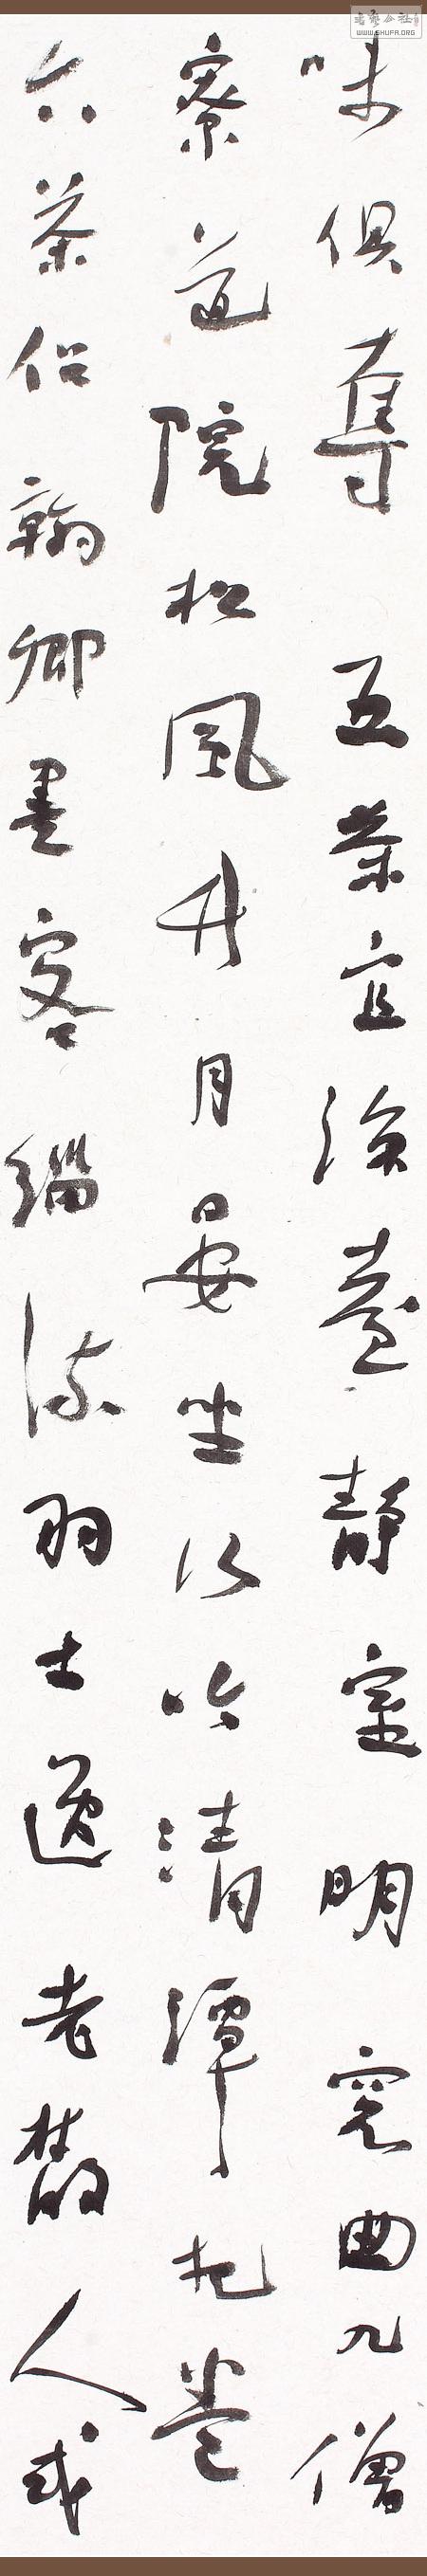 味俱奪 五茶宜涼臺靜室明窗曲几僧
寮道院松風竹月晏坐行吟清譚把卷
六茶侶翰卿墨客緇流羽士逸老散人或
書法公社
WWW.SHUFA.ORG